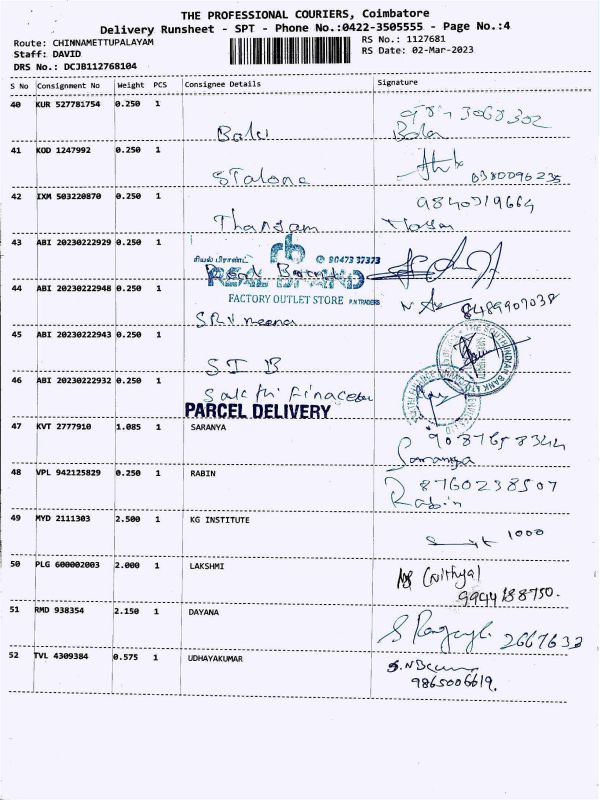 THE PROFESSIONAL COURIERS, Coimbatore
Delivery Runsheet - SPT - Phone No.:0422-3505555 - Page No.:4
Route: CHINNAMETTUPALAYAM RS No.: 1127681
Staff: DAVID RS Date: 02-Mar-2023
DRS No.: DCJB112768104
S No Consignment No Weight PCS Consignee Details Signature
40 KUR 527781754 0.250 1
Balu Bala
41 KOD 1247992 0.250 1
Stalone 0380096235
42 IXM 503220870 0.250 1 9840319664
Thangam
43 ABI 20230222929 0.250 1
rb 90473 37373
REAL BRAND
FACTORY OUTLET STORE P.N TRADERS
44 ABI 20230222948 0.250 1 8489907038
SRV meena
45 ABI 20230222943 0.250 1
S I B THE SOUTH INDIAN BANK LTD
46 ABI 20230222932 0.250 1
Sakthi Finance
PARCEL DELIVERY
47 KVT 2777910 1.085 1 SARANYA 9087658344
Saranya
48 VPL 942125829 0.250 1 RABIN 8760238507
Rabin
49 MYD 2111303 2.500 1 KG INSTITUTE 1000
50 PLG 600002003 2.000 1 LAKSHMI (Nithya)
9944188750.
51 RMD 938354 2.150 1 DAYANA 2667633
52 TVL 4309384 0.575 1 UDHAYAKUMAR
9865006619.